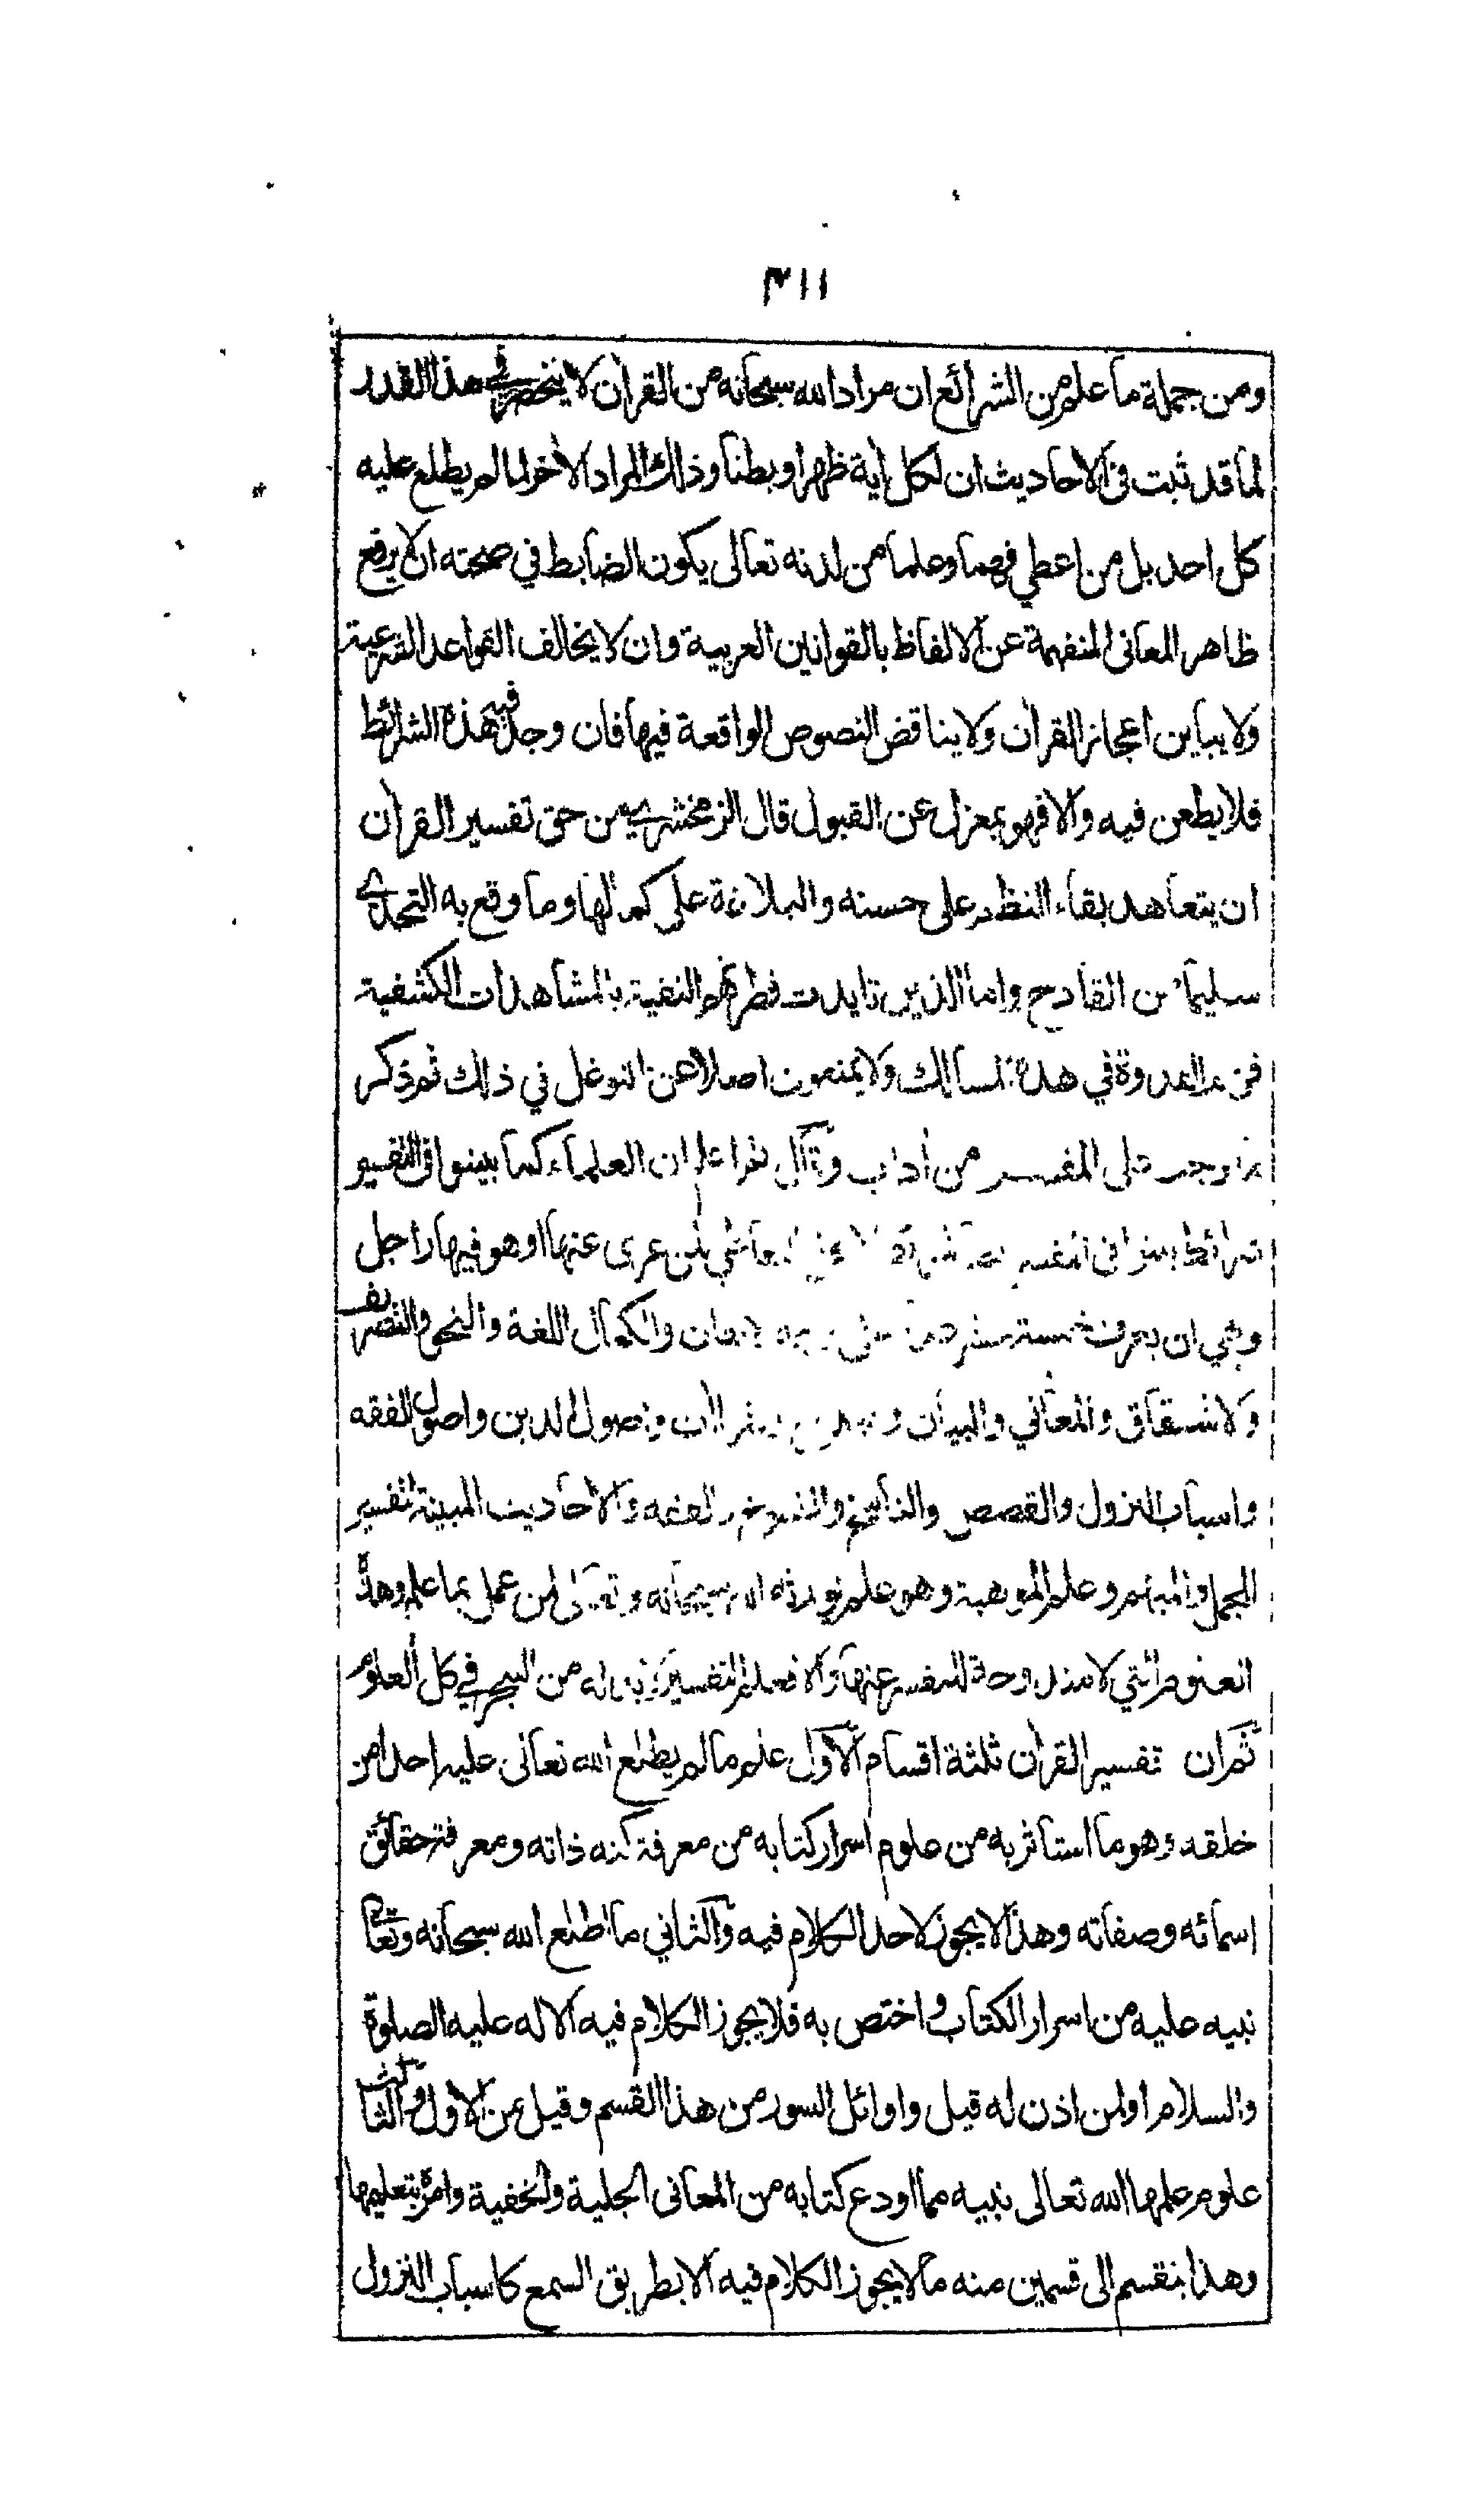 ٣١١
ومن جملة ما علم من الشرائع ان مراد الله سبحانه من القرآن لا ينحصر في هذا القدر
لما قد ثبت في الاحاديث ان لكل آية ظهرا وبطنا وذلك المراد الآخر لما لم يطلع عليه
كل احد بل من اعطي فهما وعلما من لدنه تعالى يكون الضابط في صحته ان لا يرفع
ظاهر المعاني المنفهمة عن الالفاظ بالقوانين العربية وان لا يخالف القواعد الشرعية
ولا يباين اعجاز القرآن ولا يناقض النصوص الواقعة فيها فان وجد فيه هذه الشرائط
فلا يطعن فيه والا فهو بمعزل عن القبول قال الزمخشري من حق تفسير القرآن
ان يتعاهد بقاء النظم على حسنه والبلاغة على كمالها وما وقع به التحدي
سليما من القادح واما الذين تايدت فطرتهم النقية بالمشاهدات الكشفية
فهم القدوة في هذه المسالك ولا يمنعون اصلا عن التوغل في ذلك ثم ذكر
ما وجب على المفسر من آداب وقال ثم اعلم ان العلماء كما بينوا في التفسير
شرائط بينوا في المفسر لمن عرى عنها او هو فيها راجل
وهي ان يعرف خمسة عشر علما على وجه الاتقان والكمال اللغة والنحو والتصريف
والاشتقاق والمعاني والبيان والبديع والقراآت واصول الدين واصول الفقه
واسباب النزول والقصص والناسخ والمنسوخ والفقه والاحاديث المبينة لتفسير
المجمل والمبهم وعلم الموهبة وهو علم يورثه الله سبحانه وتعالى لمن عمل بما علم وهذه
العلوم التي لا مندوحة للمفسر عنها والا فعلم التفسير لا بد له من التبحر في كل العلوم
ثم ان تفسير القرآن ثلثة اقسام الاول علم ما لم يطلع الله تعالى عليه احدا من
خلقه وهو ما استأثر به من علوم اسرار كتابه من معرفة كنه ذاته ومعرفة حقائق
اسمائه وصفاته وهذا لا يجوز لاحد الكلام فيه والثاني ما اطلع الله سبحانه وتعالى
نبيه عليه من اسرار الكتاب واختص به فلا يجوز الكلام فيه الا له عليه الصلوة
والسلام او لمن اذن له قيل واوائل السور من هذا القسم وقيل من الاول والثالث
علوم علمها الله تعالى نبيه مما اودع كتابه من المعاني الجلية والخفية وامره بتعليمها
وهذا ينقسم الى قسمين منه ما لا يجوز الكلام فيه الا بطريق السمع كاسباب النزول